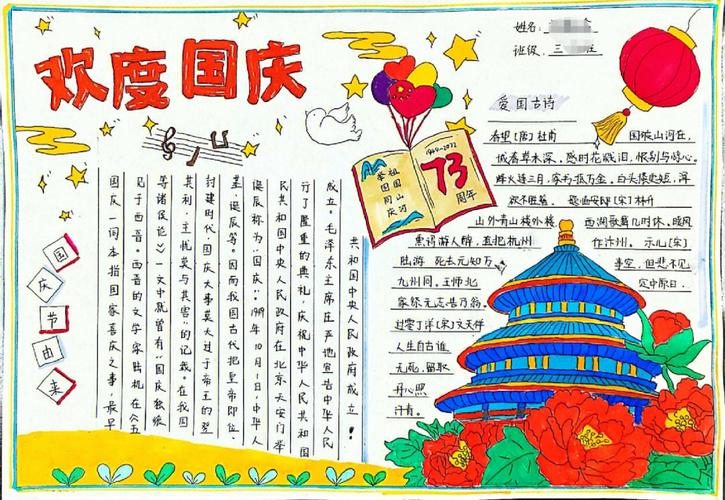 欢度国庆
姓名:
班级:三 班
1949-2022
73
周年
举国同庆
国庆节由来
国庆一词本指国家喜庆之事,最早
见于西晋。西晋的文学家陆机在《五
等诸侯论》一文中就曾有“国庆独飨
其利,主忧莫与其害”的记载。在我国
封建时代,国庆大事莫大过于帝王的登
基、诞辰等。因而我国古代把皇帝即位、
诞辰称为“国庆”。1949年10月1日,中华人
民共和国中央人民政府在北京天安门举
行了隆重的典礼,庆祝中华人民共和国
成立。毛泽东主席庄严地宣告中华人民
共和国中央人民政府成立!
爱国古诗
春望[唐]杜甫 国破山河在,
城春草木深。感时花溅泪,恨别鸟惊心。
烽火连三月,家书抵万金。白头搔更短,浑
欲不胜簪。 题临安邸[宋]林升
山外青山楼外楼, 西湖歌舞几时休。暖风
熏得游人醉,直把杭州 作汴州。 示儿[宋]
陆游 死去元知万 事空,但悲不见
九州同。王师北 定中原日,
家祭无忘告乃翁。
过零丁洋[宋]文天祥
人生自古谁
无死,留取
丹心照
汗青。